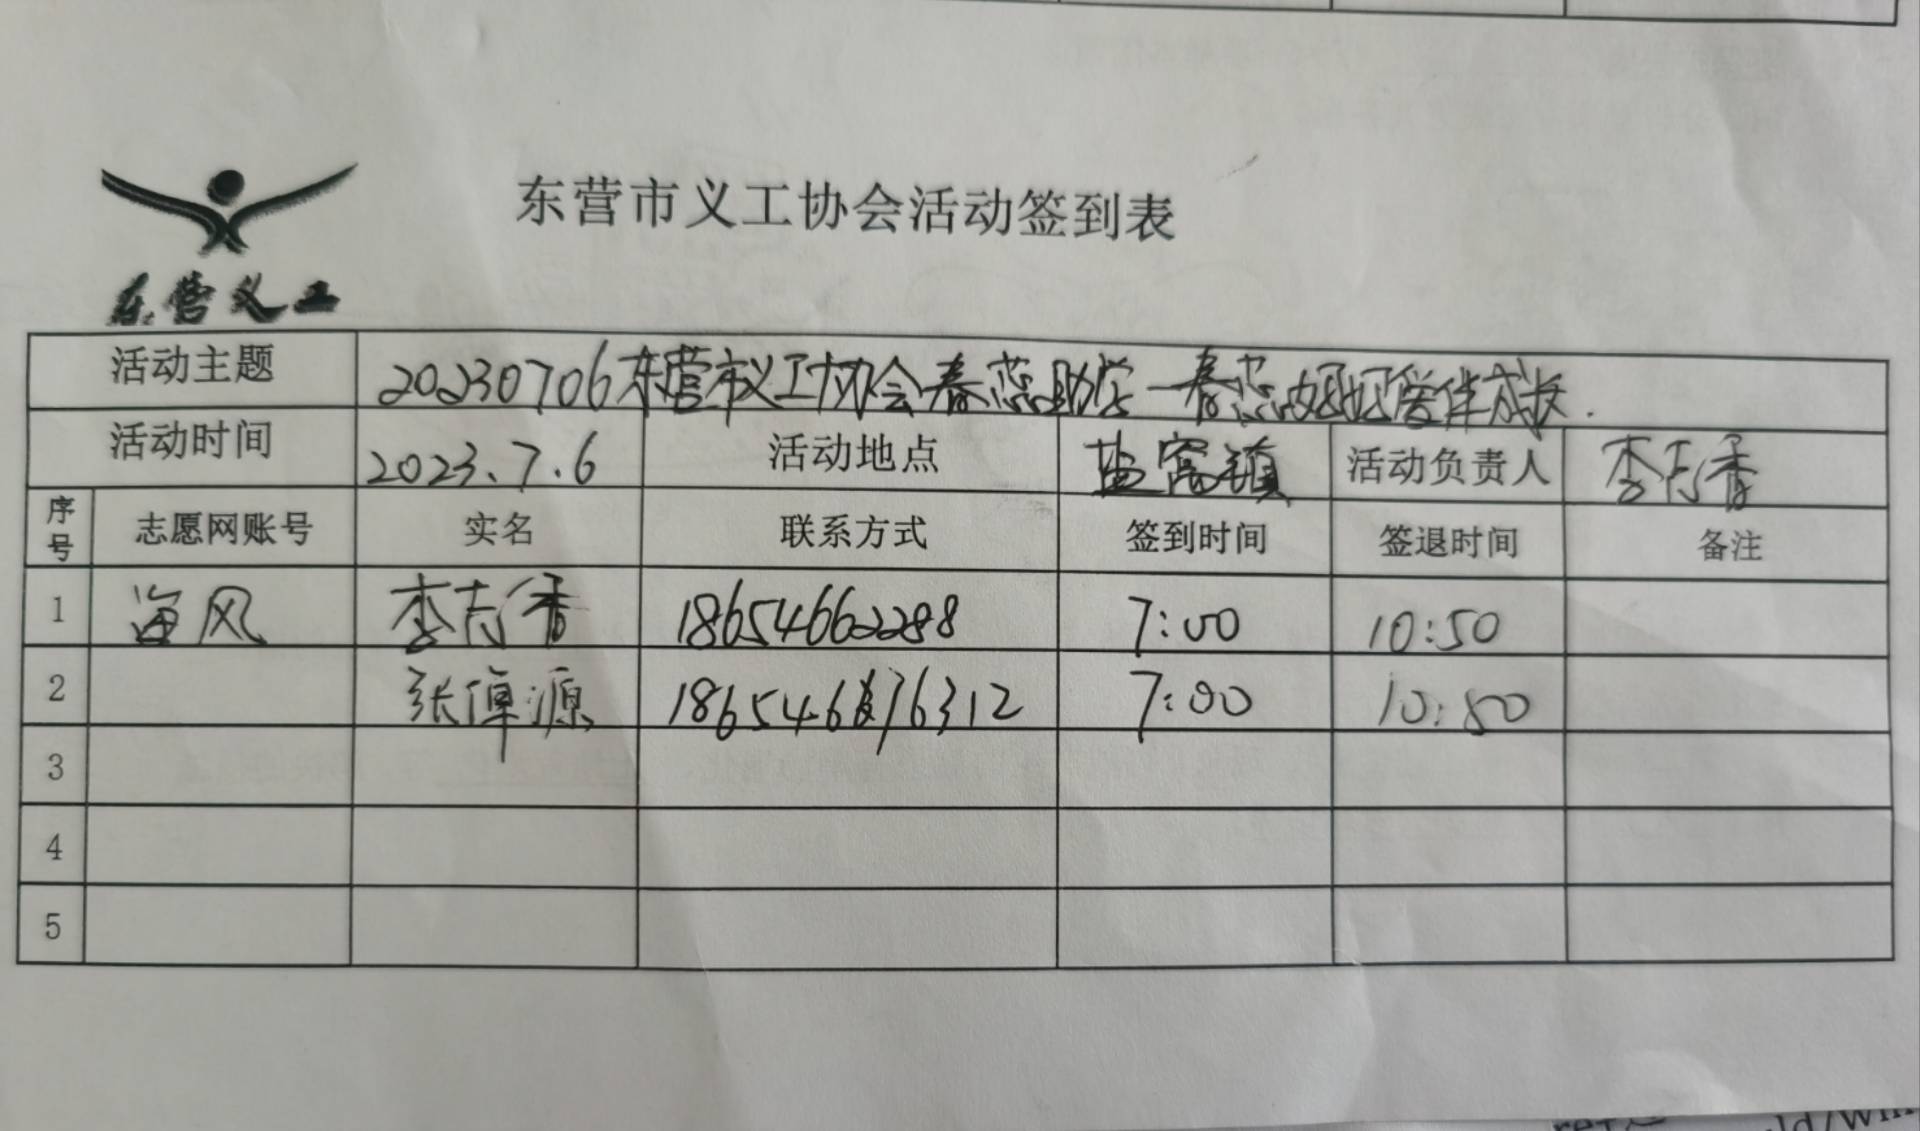 东营市义工协会活动签到表
东营义工
活动主题 20230706东营市义工协会春蕊助学—春蕊妈妈陪伴成长.
活动时间 2023.7.6 活动地点 盐窝镇 活动负责人 李志香
序号 志愿网账号 实名 联系方式 签到时间 签退时间 备注
1 海风 李志香 18654662288 7:00 10:50
2 张倬源 7:00 10:50
3
4
5